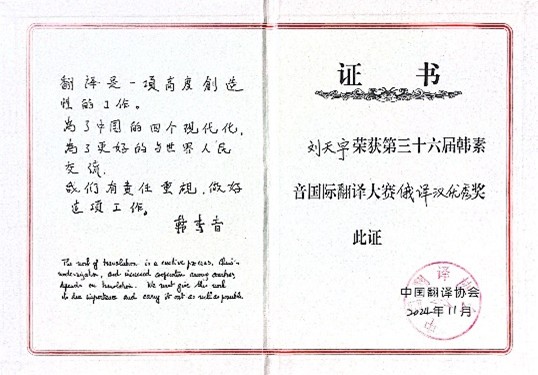 翻译是一项高度創造
性的工作。
为了中国的四个现代化,
为了更好的与世界人民
交流,
我们有责任重视,做好
这项工作。
韩素音
The work of translation is a creative process. China's
modernization, and increased cooperation among countries,
depends on translation. We must give this work
its due importance and carry it out as well as possible.
证书
刘天宇荣获第三十六届韩素
音国际翻译大赛俄译汉优秀奖
此证
中国翻译协会
2024年11月